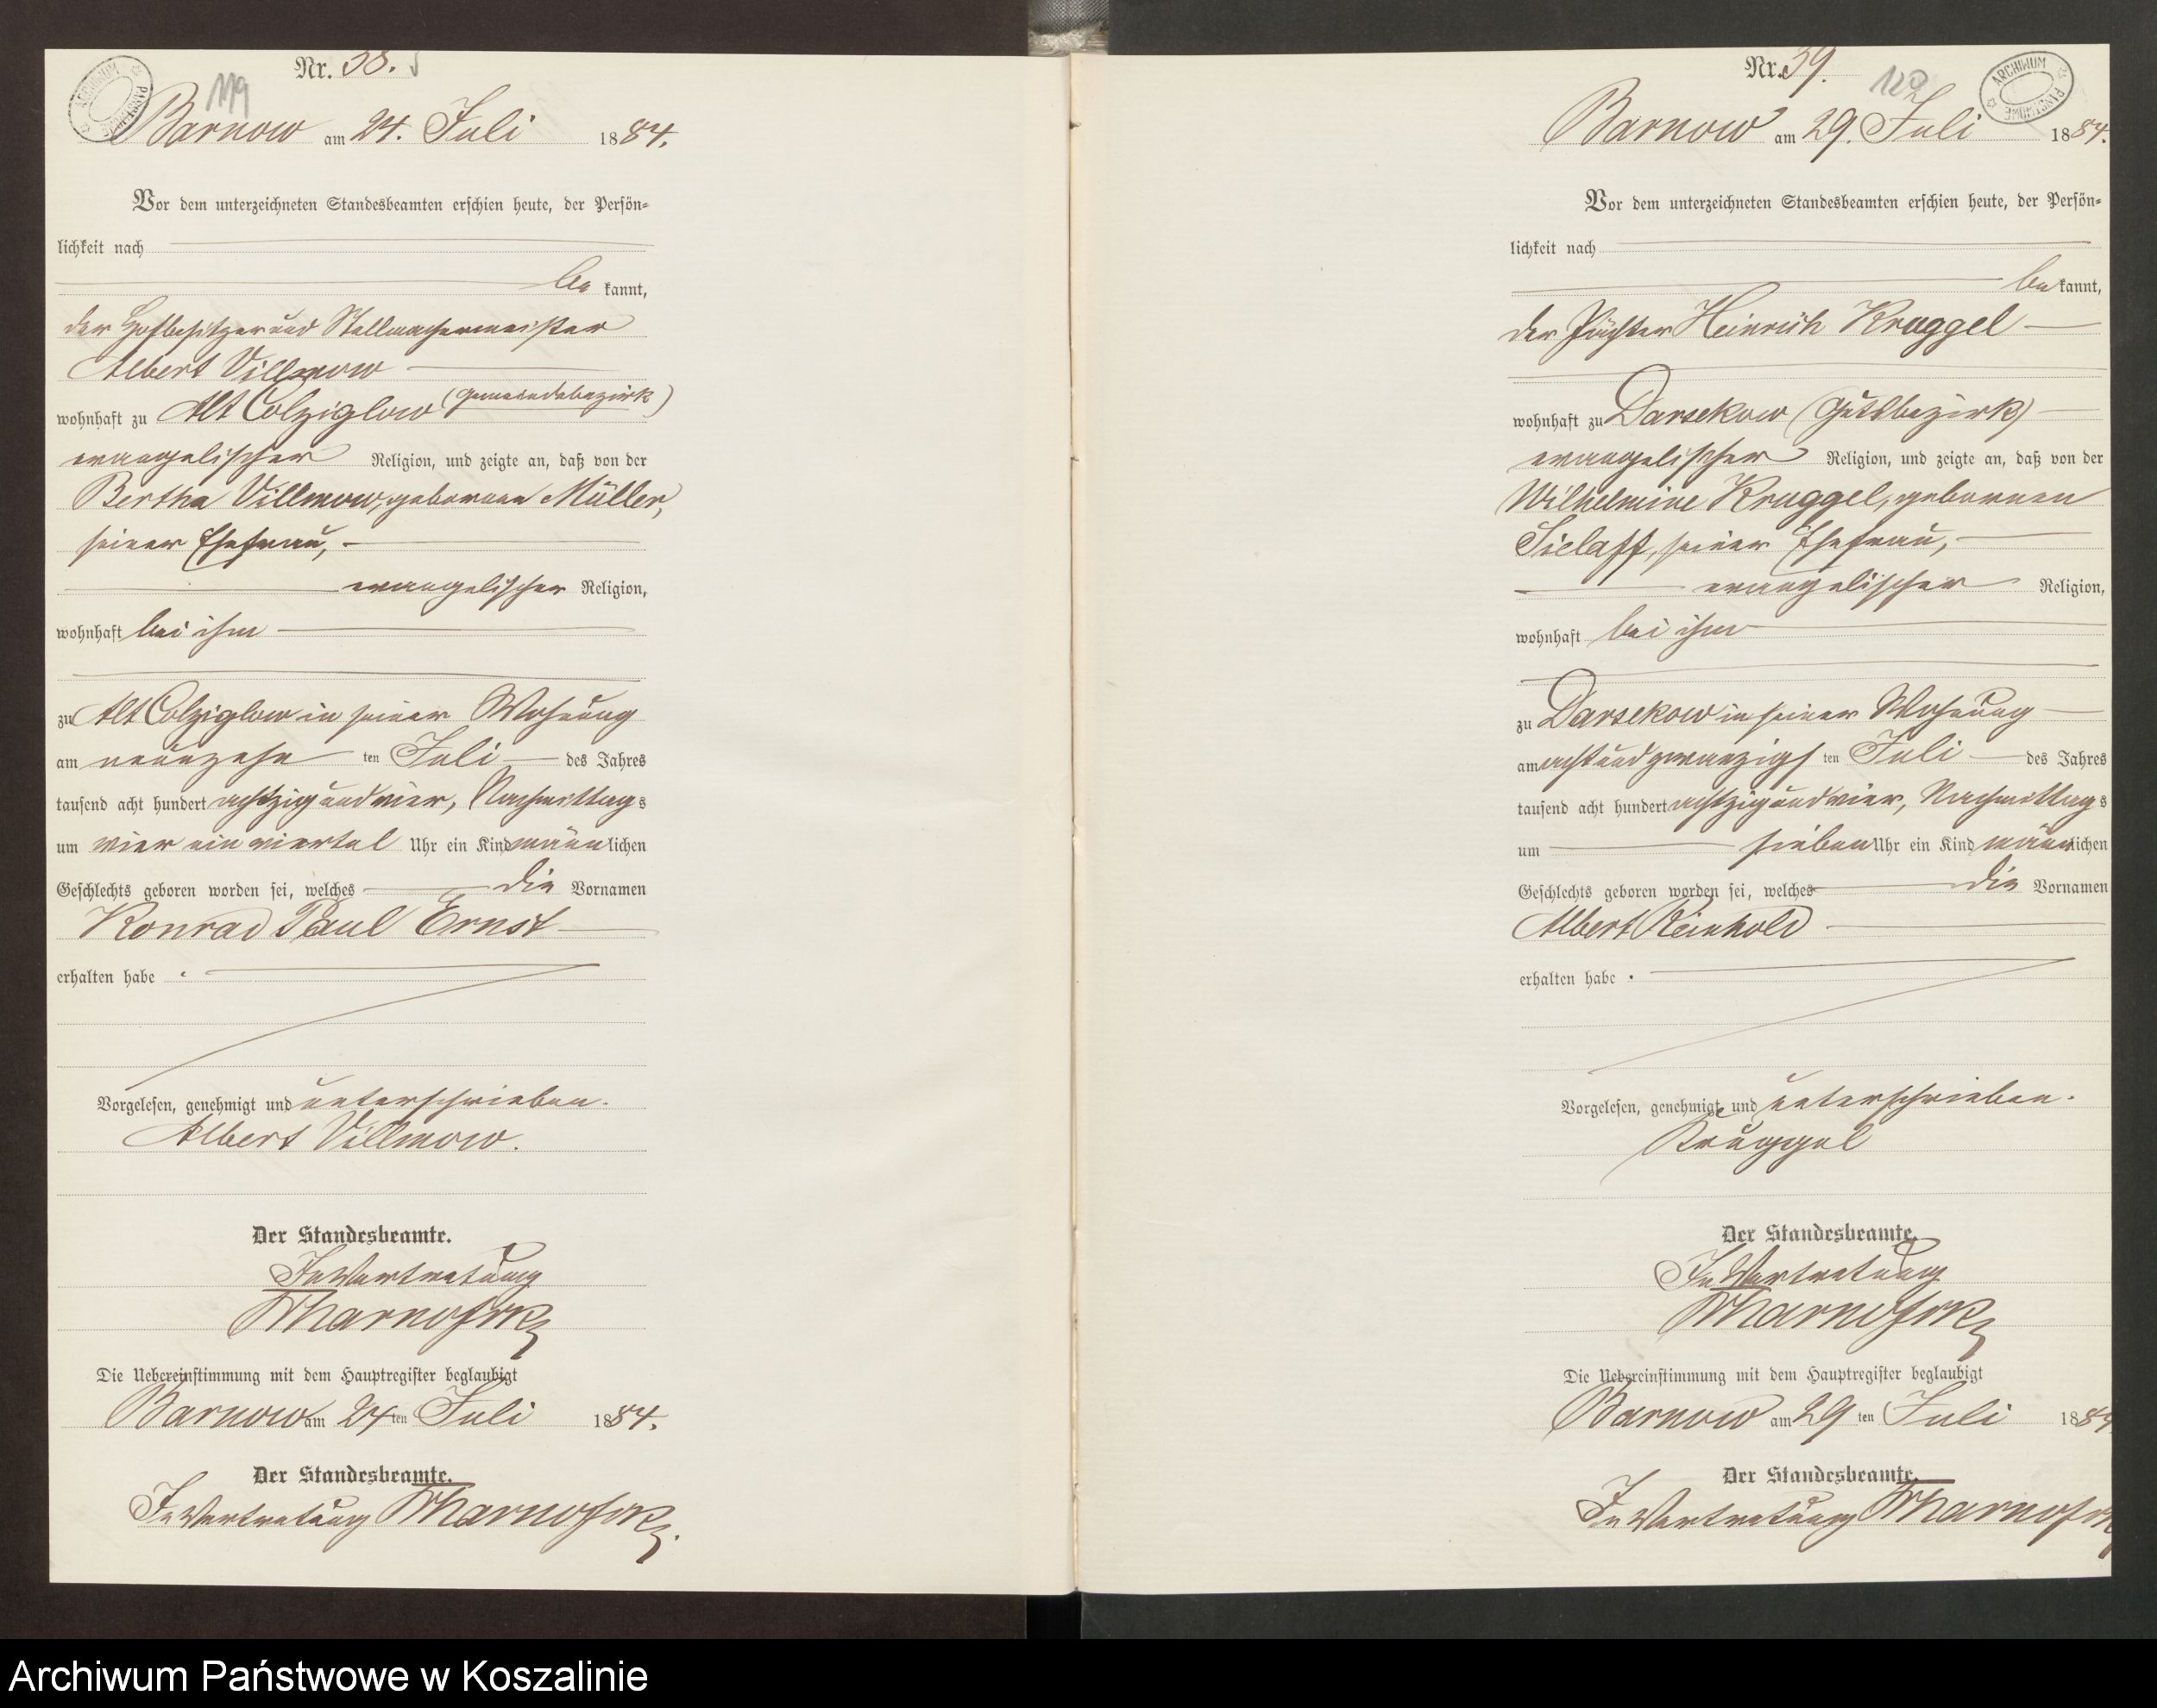 ARCHIWUM PAŃSTWOWE
119
Nr. 38.
Barnow am 24. Juli 1884.
Vor dem unterzeichneten Standesbeamten erschien heute, der Persön-
lichkeit nach
be kannt,
der Hofbesitzer und Stellmachermeister
Albert Villmow
wohnhaft zu Alt Colziglow (Gemeindebezirk)
evangelischer Religion, und zeigte an, daß von der
Bertha Villmow, geborenen Müller,
seiner Ehefrau,
evangelischer Religion,
wohnhaft bei ihm
zu Alt Colziglow in seiner Wohnung
am neunzehn ten Juli des Jahres
tausend acht hundert achtzig und vier, Nachmittags
um vier ein viertel Uhr ein Kind männlichen
Geschlechts geboren worden sei, welches die Vornamen
Konrad Paul Ernst
erhalten habe .
Vorgelesen, genehmigt und unterschrieben.
Albert Villmow.
Der Standesbeamte.
In Vertretung
Die Uebereinstimmung mit dem Hauptregister beglaubigt
Barnow am 24 ten Juli 1884.
Der Standesbeamte.
In Vertretung
ARCHIWUM PAŃSTWOWE
120
Nr. 39.
Barnow am 29. Juli 1884.
Vor dem unterzeichneten Standesbeamten erschien heute, der Persön-
lichkeit nach
be kannt,
der Pächter Heinrich Kruggel
wohnhaft zu Darsekow (Gutsbezirk)
evangelischer Religion, und zeigte an, daß von der
Wilhelmine Kruggel, geborenen
Sielaff, seiner Ehefrau,
evangelischer Religion,
wohnhaft bei ihm
zu Darsekow in seiner Wohnung
am acht und zwanzigs ten Juli des Jahres
tausend acht hundert achtzig und vier, Nachmittags
um sieben Uhr ein Kind männlichen
Geschlechts geboren worden sei, welches die Vornamen
Albert Reinhold
erhalten habe .
Vorgelesen, genehmigt und unterschrieben.
Kruggel
Der Standesbeamte.
In Vertretung
Die Uebereinstimmung mit dem Hauptregister beglaubigt
Barnow am 29 ten Juli 1884
Der Standesbeamte.
In Vertretung
Archiwum Państwowe w Koszalinie